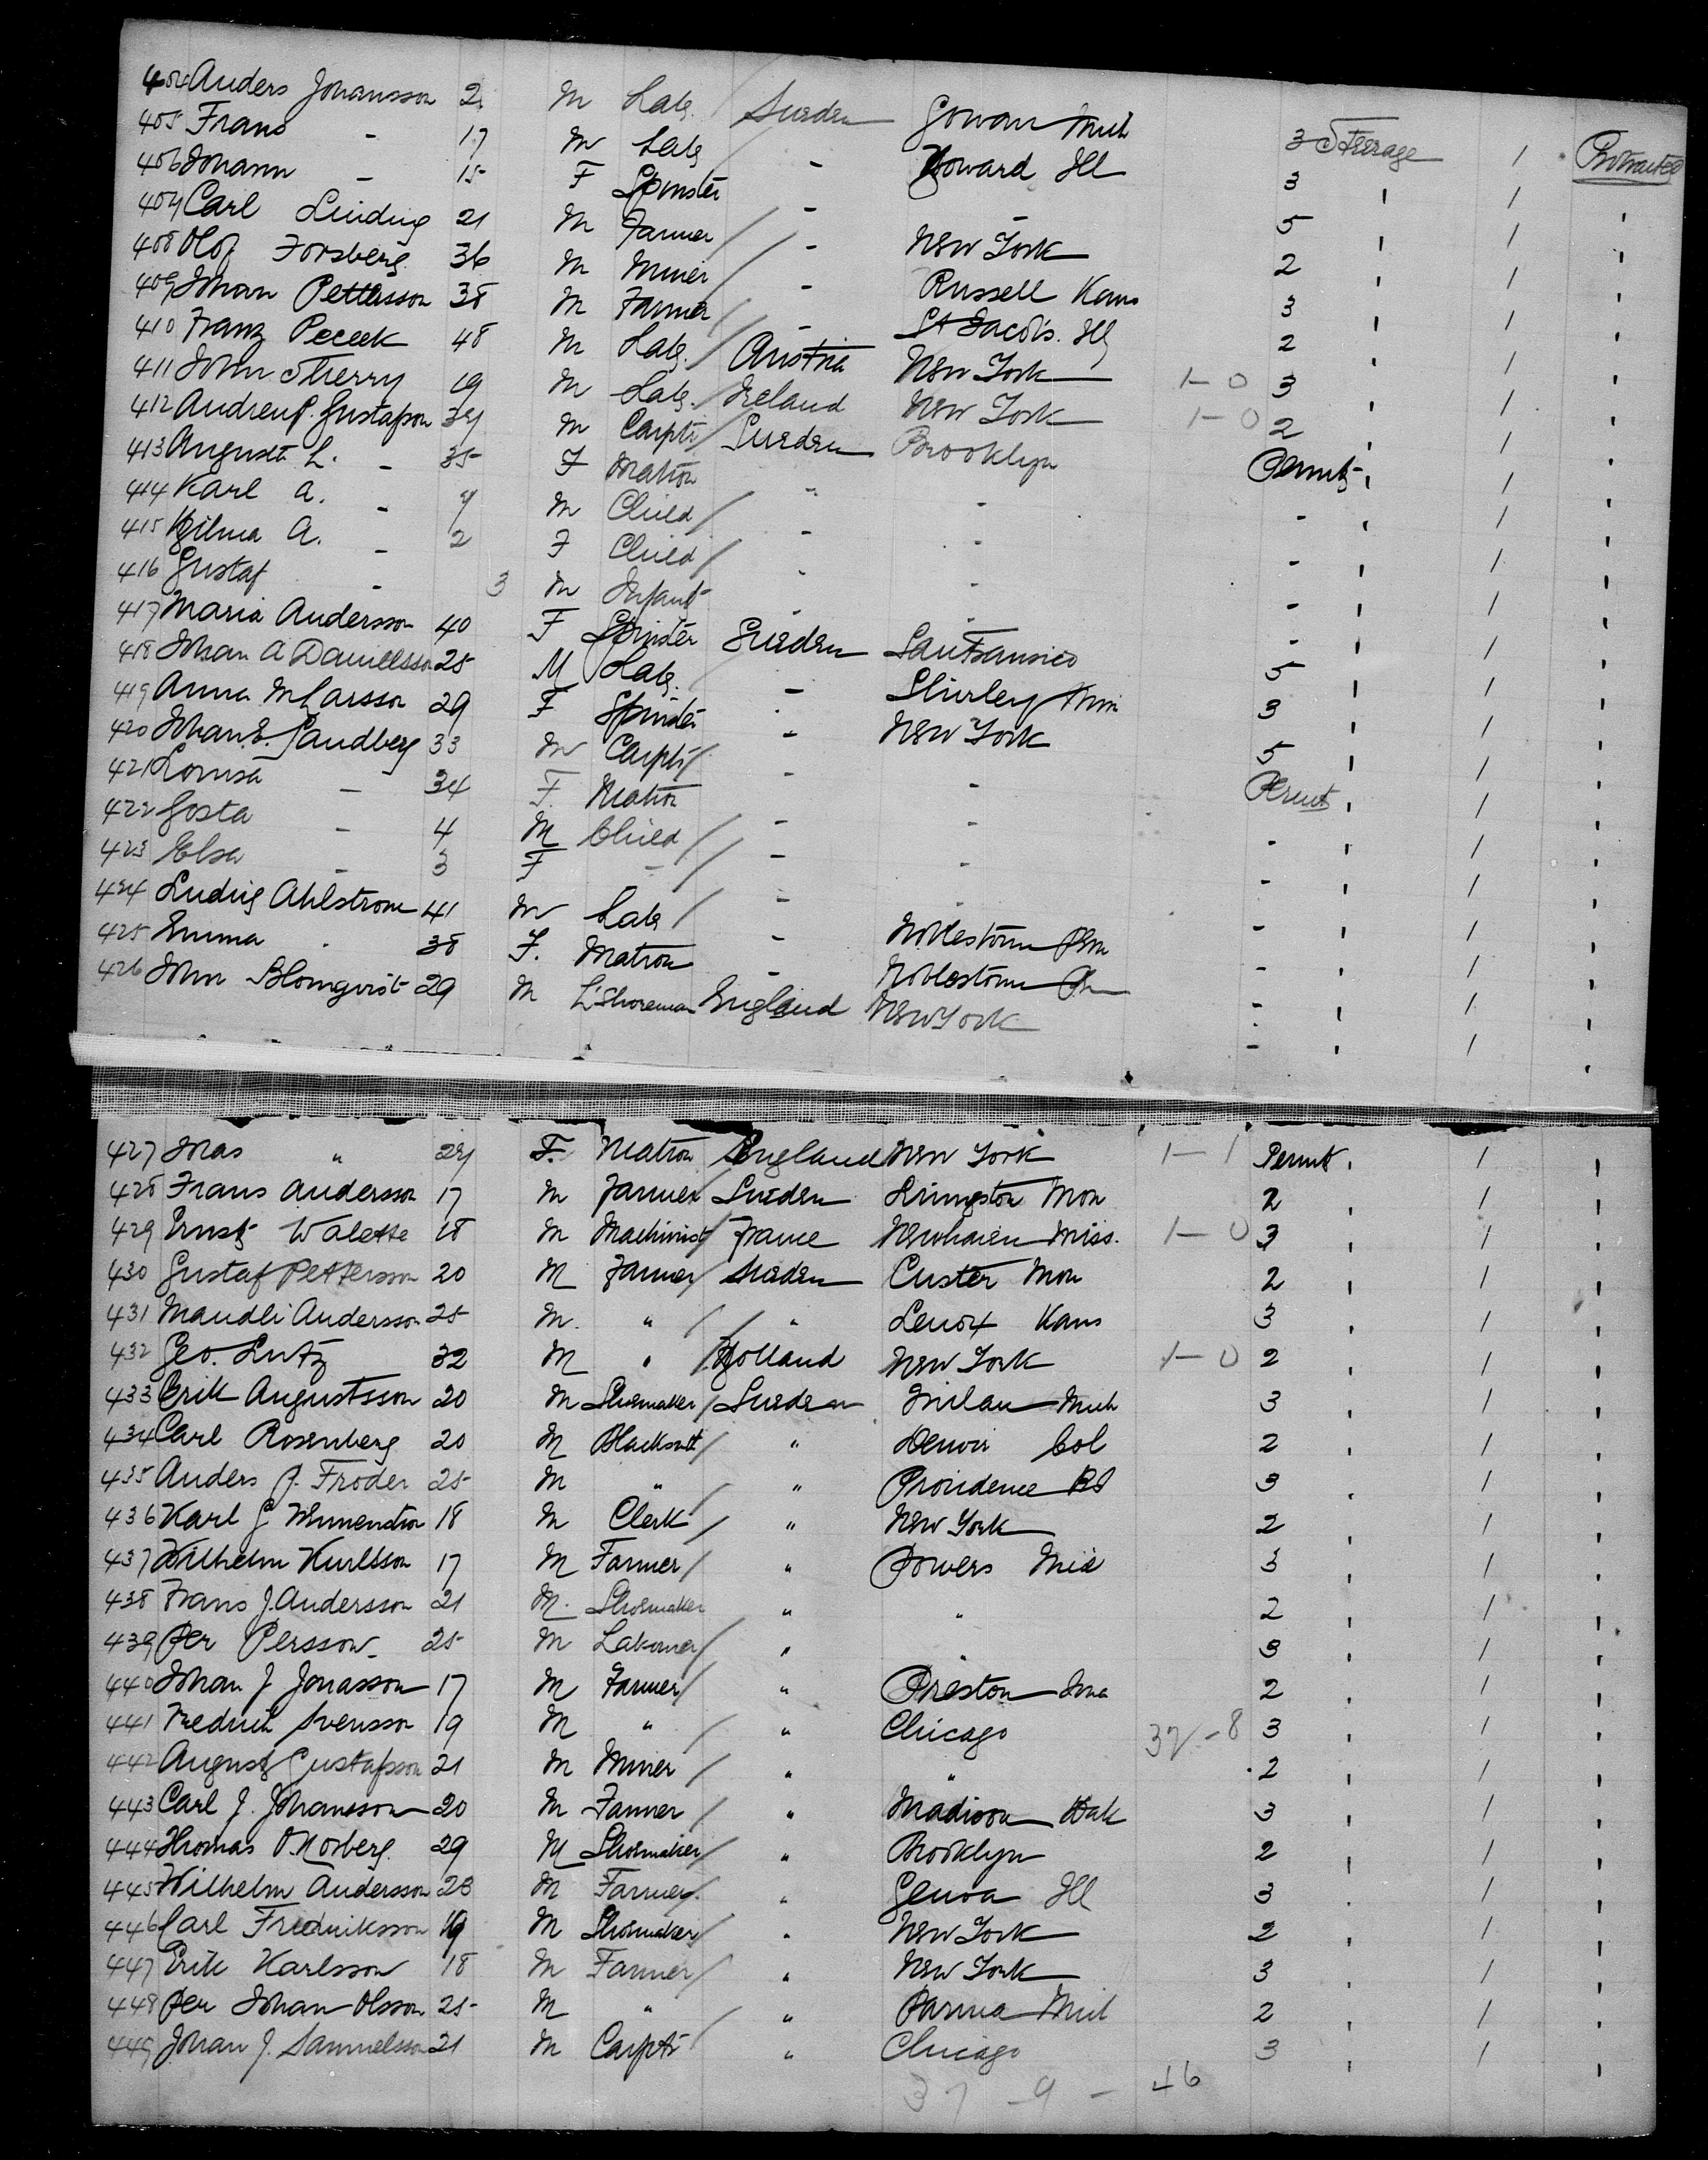 404 Anders Johansson 2 M Lab. Sweden Gowan Mich 3 Steerage 1 Protracted
405 Frans - 17 M Lab - Howard Ill 3 " 1 "
406 Johann - 15 F Spinster - - 5 " 1 "
407 Carl 21 M Farmer / - New York 2 " 1 "
408 Olof Forsberg 36 M Miner / - Russell Kans 3 " 1 "
409 Johan Pettersson 38 M Farmer / - St Jacobs. Ill 2 " 1 "
410 Franz Pecek 48 M Lab. / Austria New York 1-0 3 " 1 "
411 John Sherry 19 M Lab. / Ireland New York 1-0 2 " 1 "
412 Andrew P. Gustafson 37 M Carptr / Sweden Brooklyn Permt " 1 "
413 Augusta L. - 35 F Matron " - - " 1 "
414 Karl A. - 7 M Child / - - - " 1 "
415 Hilma A. - 2 F Child / - - - " 1 "
416 Gustaf - 3 M Infant - - - " 1 "
417 Maria Andersson 40 F Spinster Sweden San Fransico 5 " 1 "
418 Johan A Daniellsson 25 M Lab. - Shirley Min 3 " 1 "
419 Anna M Larsson 29 F Spinster - New York 5 " 1 "
420 Johan E. Sandberg 33 M Carptr / - - Permt " 1 "
421 Lovisa - 34 F. Matron - - - " 1 "
422 Gosta - 4 M Child / - - - " 1 "
423 Elsa - 3 F - / - - - " 1 "
424 Ludvig Ahlstrom 41 M Lab / - Noblestown Pen - " 1 "
425 Emma - 38 F. Matron - Noblestown Pen - " 1 "
426 John Blomqvist 29 M L'Shoreman England New York - " 1 "
427 Mas " 27 F. Matron England New York 1-1 Permt " 1 "
428 Frans Andersson 17 M Farmer Sweden Livingston Mon 2 " 1 "
429 Ernst Walette 18 M Machinist / France Newhaven Miss. 1-0 3 " 1 "
430 Gustaf Pettersson 20 M Farmer / Sweden Custer Mon 2 " 1 "
431 Andersson 25 M. " / " Lenox Kans 3 " 1 "
432 Geo. Lutz 32 M " / Holland New York 1-0 2 " 1 "
433 Erik Augustsson 20 M Shoemaker / Sweden Milan Mich 3 " 1 "
434 Carl Rosenberg 20 M Blacksmt / " Denver Col 2 " 1 "
435 Anders P. Froder 25 M " / " Providence RI 3 " 1 "
436 Karl G 18 M Clerk / " New York 2 " 1 "
437 Wilhelm 17 M Farmer / " Powers Mich 3 " 1 "
438 Frans J. Andersson 21 M. Shoemaker " " 2 " 1 "
439 Per Persson 25 M Laborer / " " 3 " 1 "
440 Johan J Jonasson 17 M Farmer / " Preston Iowa 2 " 1 "
441 Fredrik Svensson 19 M " / " Chicago 37-8 3 " 1 "
442 August Gustafsson 21 M Miner / " " 2 " 1 "
443 Carl J. Johansson 20 M Farmer / " Madison Dak 3 " 1 "
444 Thomas O. Mosberg 29 M Shoemaker / " Brooklyn 2 " 1 "
445 Wilhelm Andersson 23 M Farmer / " Genoa Ill 3 " 1 "
446 Carl Fredriksson 19 M Shoemaker / " New York 2 " 1 "
447 Erik Karlsson 18 M Farmer / " New York 3 " 1 "
448 Per Johan Olsson 25 M " / " Parma Mich 2 " 1 "
449 Johan J. Samuelsson 21 M Carptr / " Chicago 3 " 1 "
37 - 9 - 46